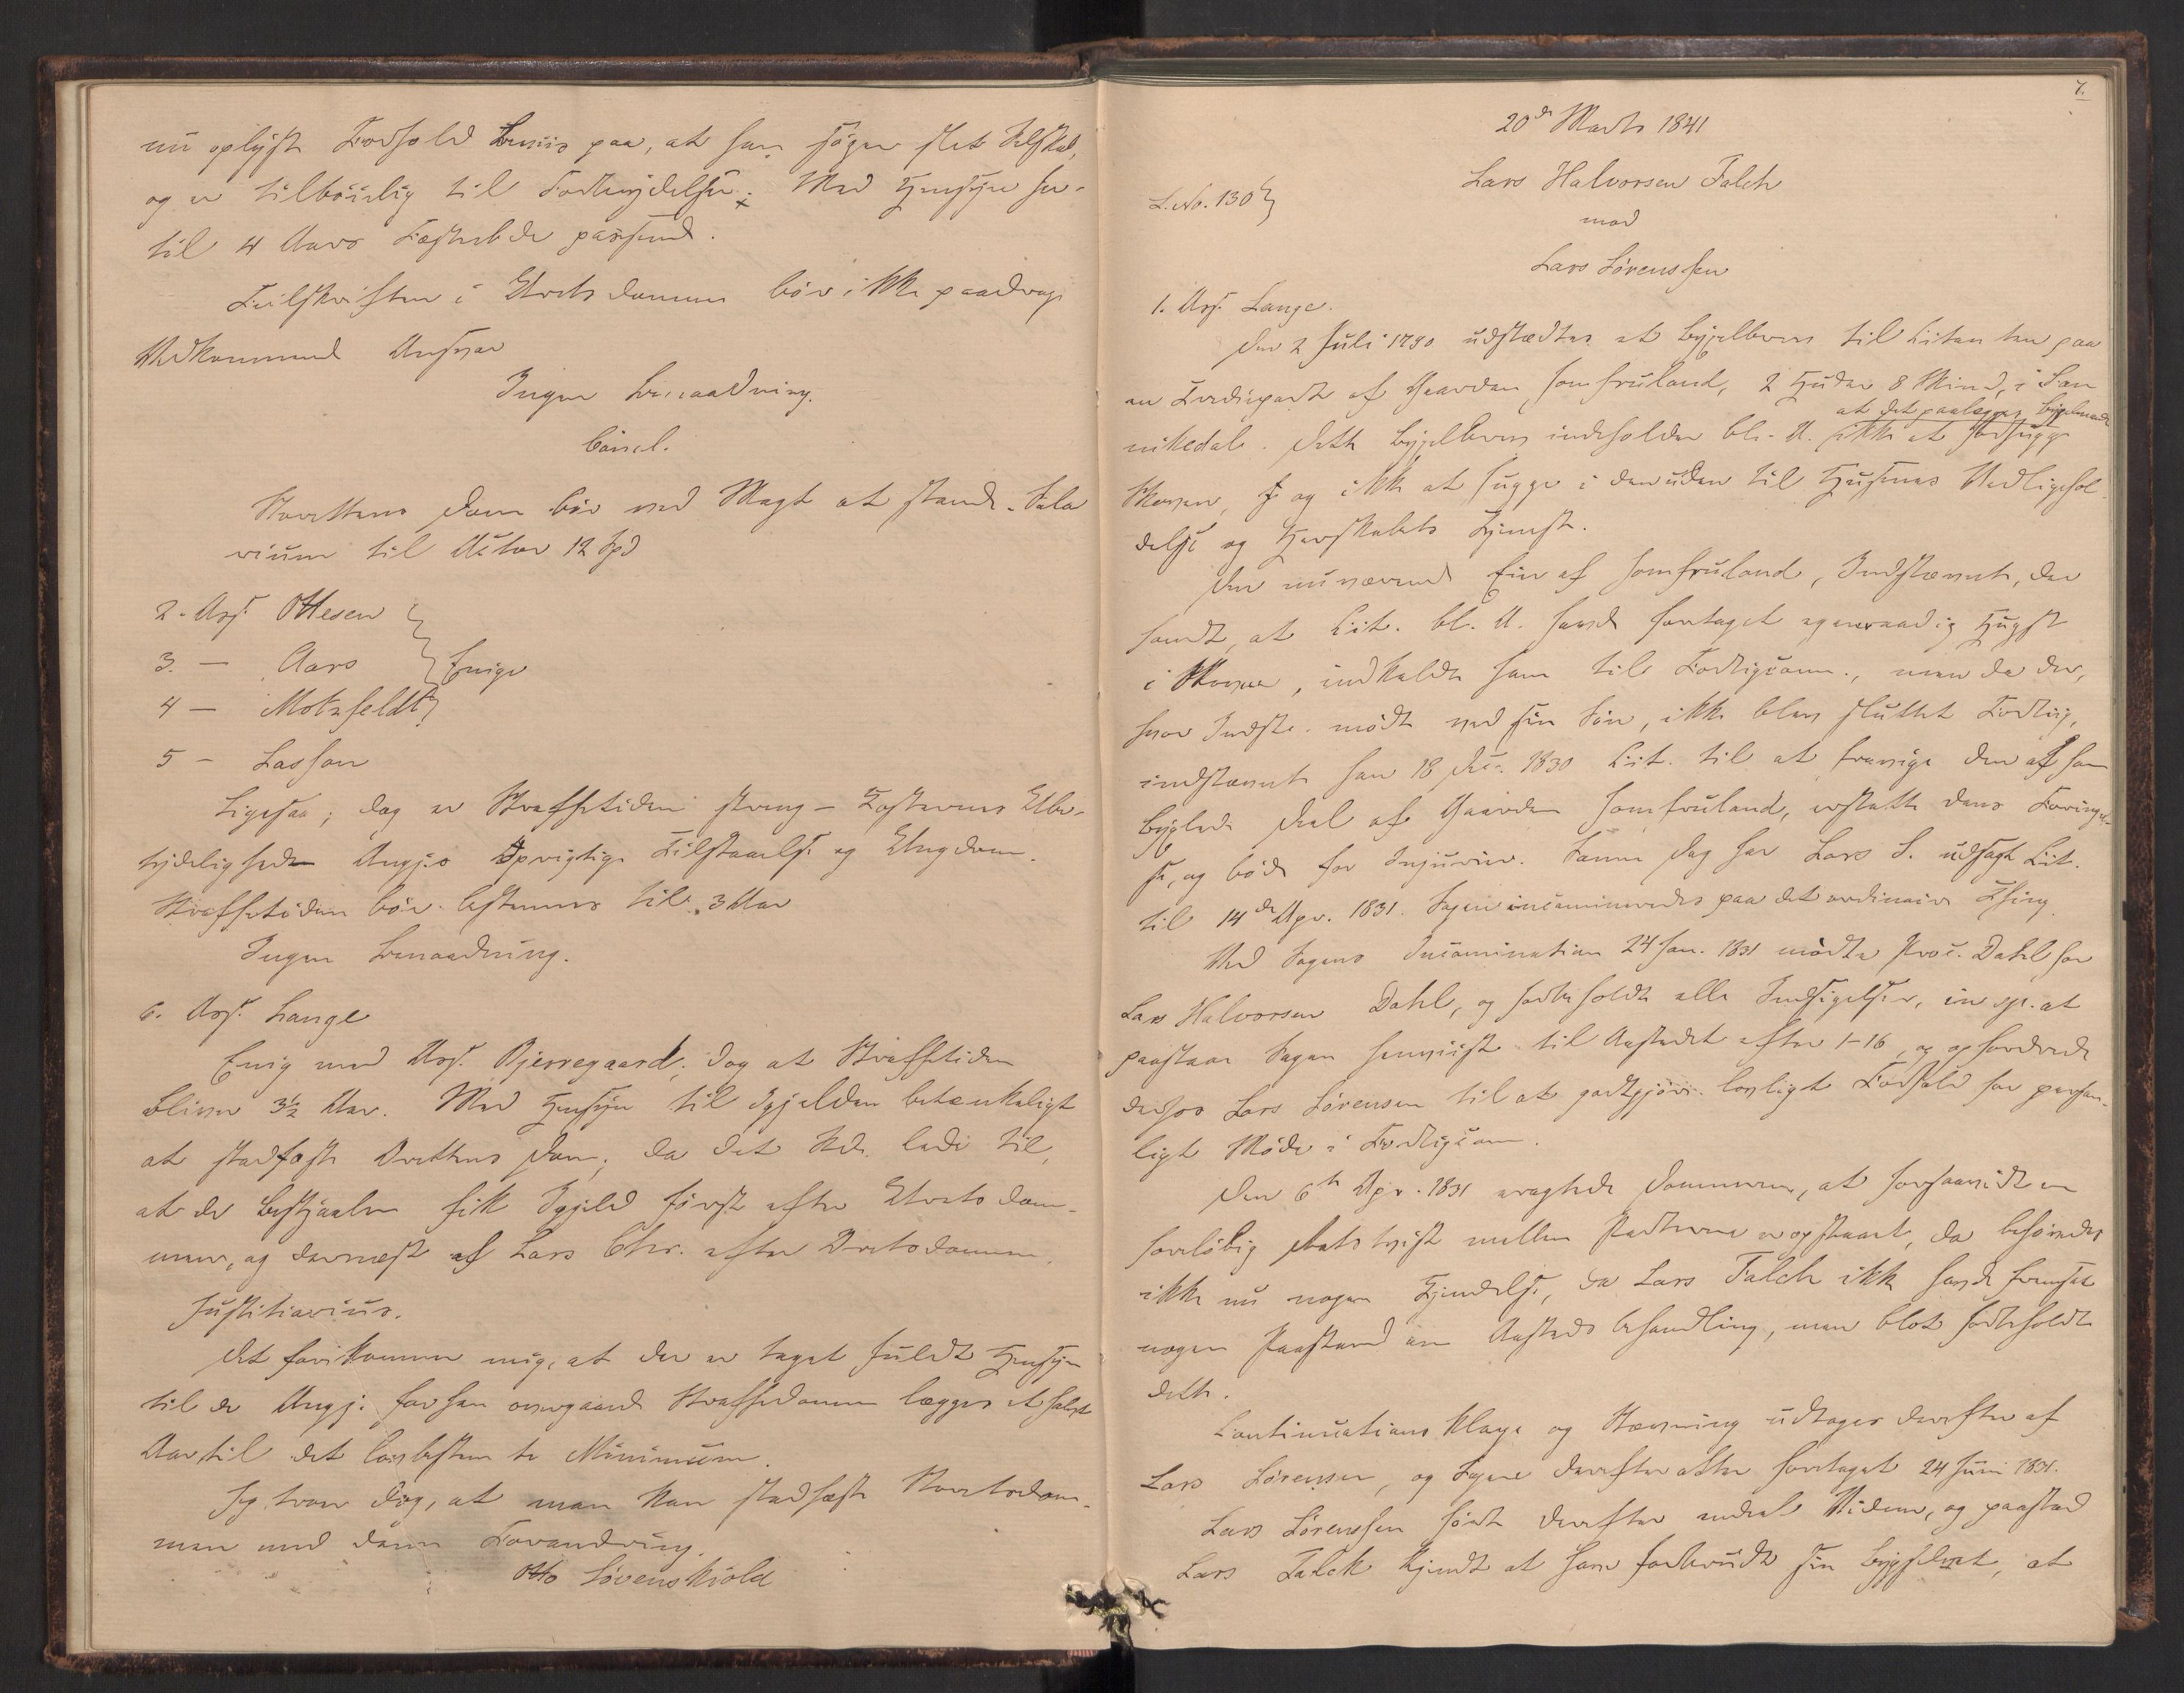 nu oplyste Forhold beviis paa, at han søger slet Selskab,
og er tilbøielig til Fortrydelser. Med Hensyn her-
til 4 Aars Fæstebde passende.
Feilskriften i Underdommen bør ikke paadrage
Vedkommende Ansvar
Ingen Benaadning.
Cóncl.
Stiftsrettens Dom bør ved Magt at stande. Sala
rium til Actor 12 Spd
2. Ass. Ottesen
3. — Aars
4 — Motzfeldt
Enige
5 — Lasson
Ligesaa; dog er Straffetiden streng – Kosternes Ube-
tydelighed Angj.s oprigtige Tilstaaelse og Ungdom.
Straffetiden bør bestemmes til 3 Aar
Ingen Benaadning.
6. Ass. Lange
Enig med Ass. Bjerregaard; dog at Straffetiden
bliver 3½ Aar. Med Hensyn til Igjelden betænkeligt
at stadfæste Overrettens Dom; da det lader til,
at de Bestjaalne fik Igjeld først efter Underdom-
men, og dernæst af Lars Chr. efter Overretsdommen.
Justitiarius.
Det forekommer mig, at der er taget fuldt Hensyn
til de Angj. for ham overgaaede Straffedomme lægges et halvt
Aar til det lovbestemte Minimum.
Jeg troer dog, at man kan stadfæste Overretsdom-
men med denne Forandring.
Otto Løvenskiold
7.
20de Marts 1841
L. No. 130
Lars Halvorsen Falch
mod
Lars Sørenssen
1. Ass. Lange.
Den 2 Juli 1790 udstædtes et Bygselbrev til Citanten paa
en Trediepart af Gaarden Jomfruland, 2 Huder 8 Skind, i San
nikedal. Dette Bygselbrev indeholder bl. A. at det paalægges Bygselmanden ikke at forhugge
Skoven, og ikke at hugge i den uden til Husenes Vedligehol-
delse og Herskabets Tjeneste.
Den nuværende Eier af Jomfruland, Indstævnte, der
fandt, at Cit. bl. A. havde foretaget egenraadig Hugst
i Skoven, indkaldte ham til Forligscom., men da der,
hvor Indste. mødte ved sin Søn, ikke blev sluttet Forlig,
indstævnte han 18 Dec. 1830 Cit. til at fravige den af ham
byglede Deel af Gaarden Jomfruland, erstatte dens Forringel-
se, og bøde for Injurier. Samme Dag har Lars S. udsagt Cit.
til 14de Apr. 1831. Sagen incamineredes paa det ordinaire Thing.
Ved Sagens Incamination 24 Jan. 1831 mødte Proc. Dahl for
Lars Halvorsen Dahl, og forbeholdt alle Indsigelser, in sp. at
paastaae Sagen henviist til Aastedet efter 1-16, og opfordrede
derhos Lars Sørensen til at godtgjøre lovligt Forfald for person-
ligt Møde i Forligscom.
Den 6te Apr. 1831 eragtede Dommeren, at forsaavidt en
foreløbig Debats tvist mellem Parterne er opstaaet, da behøvedes
ikke nu nogen Kjendelse, da Lars Falch ikke havde fremsat
nogen Paastand om Aasteds behandling, men blot forbeholdt
dette.
Continuations Klage og Stævning udtoges derefter af
Lars Sørensen, og Sagen derefter atter foretaget 24 Juni 1831.
Lars Sørenssen førte derefter endeel Vidner, og paastod
Lars Falck kjendt at have forbrudt sin Bygselret, at